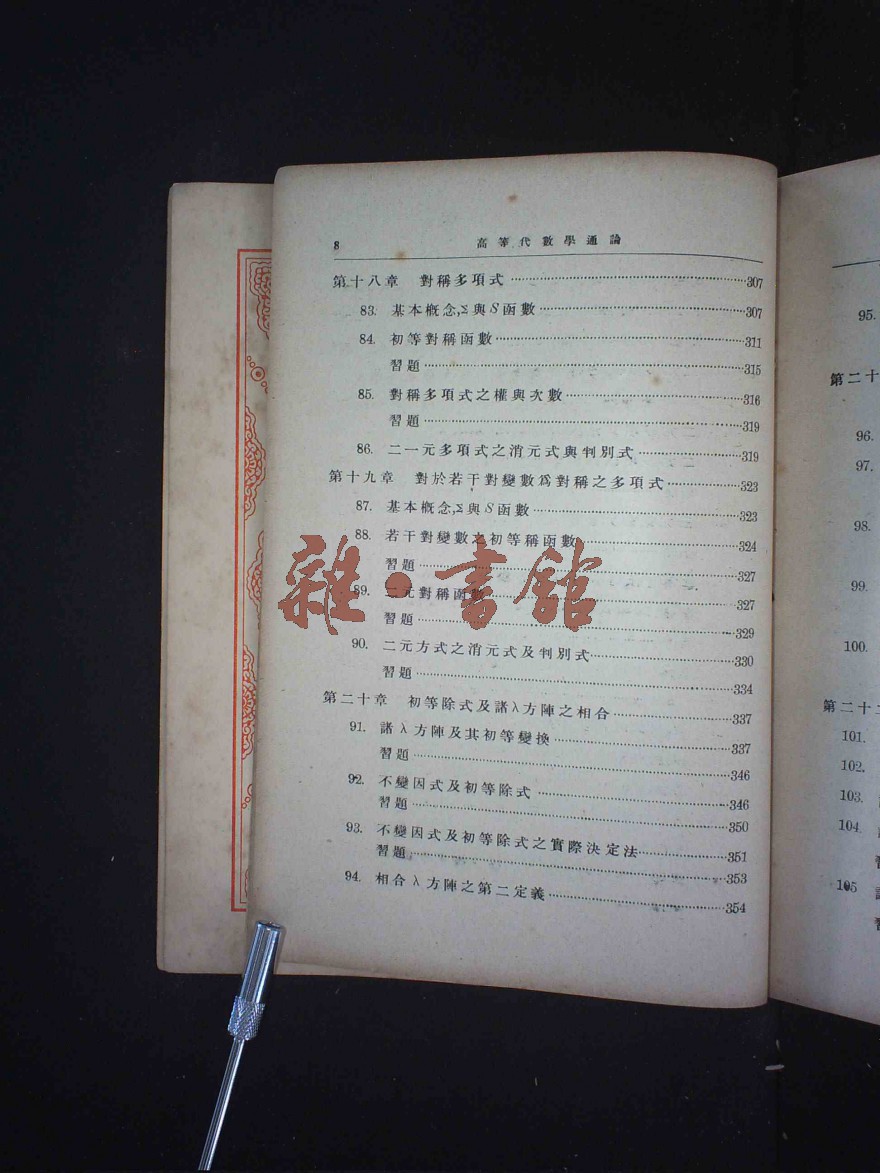 8 高等代數學通論
第十八章 對稱多項式 307
83. 基本概念,Σ與S函數 307
84. 初等對稱函數 311
習題 315
85. 對稱多項式之權與次數 316
習題 319
86. 二一元多項式之消元式與判別式 319
第十九章 對於若干對變數爲對稱之多項式 323
87. 基本概念,Σ與S函數 323
88. 若干對變數之初等稱函數 324
習題 327
89. 二元對稱函數 327
習題 329
90. 二元方式之消元式及判別式 330
習題 334
第二十章 初等除式及諸λ方陣之相合 337
91. 諸λ方陣及其初等變換 337
習題 346
92. 不變因式及初等除式 346
習題 350
93. 不變因式及初等除式之實際決定法 351
習題 353
94. 相合λ方陣之第二定義 354
雜·書館
95.
第二十
96.
97.
98.
99.
100.
第二十二
101.
102.
103.
104
105